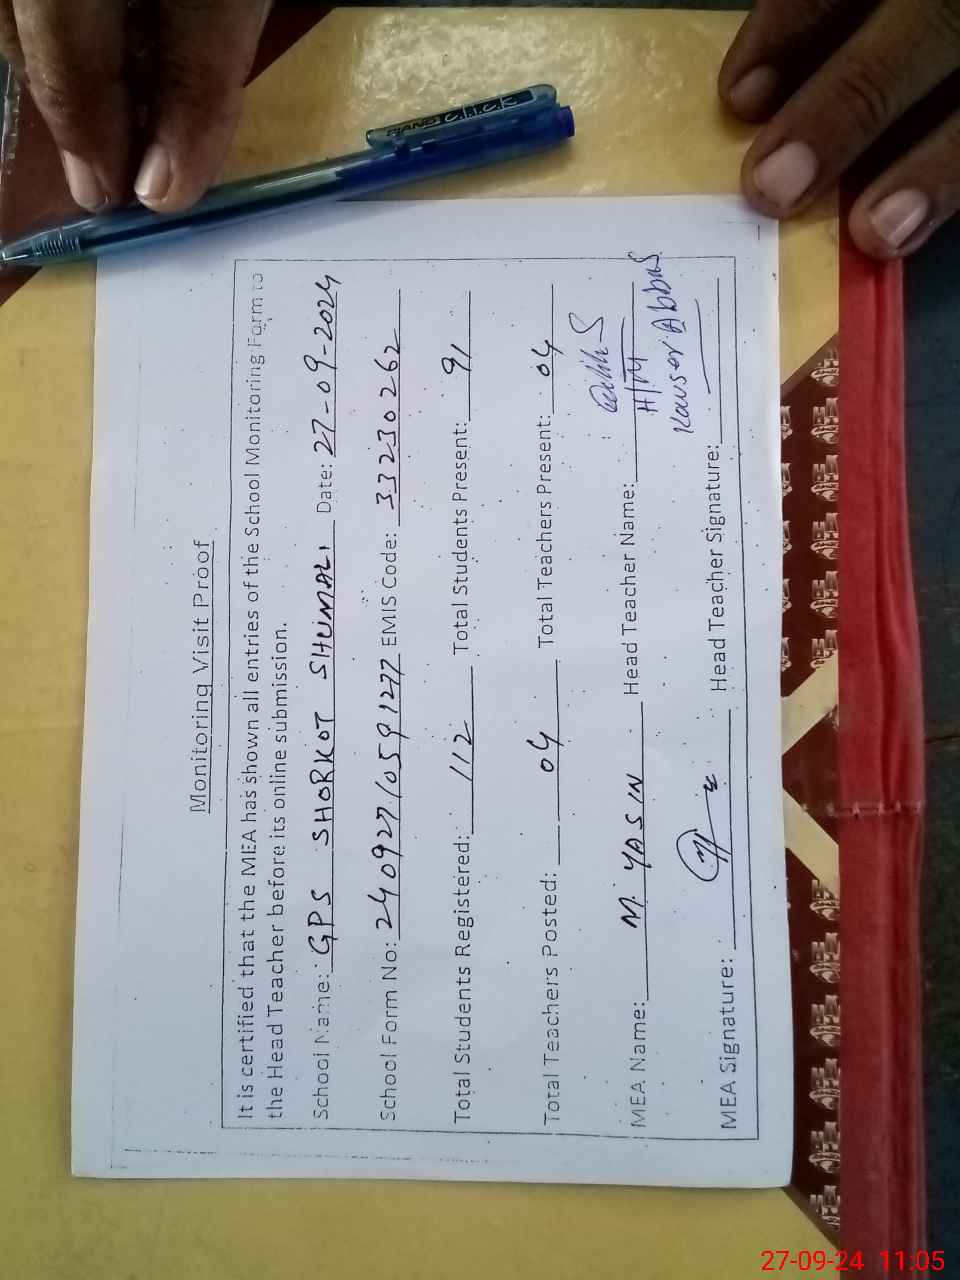 Monitoring Visit Proof
It is certified that the MEA has shown all entries of the School Monitoring Form to
the Head Teacher before its online submission.
School Name: GPS SHORKOT SHUMALI Date: 27-09-2024
School Form No: 24092710591277 EMIS Code: 33230262
Total Students Registered: 112 Total Students Present: 91
Total Teachers Posted: 04 Total Teachers Present: 04
MEA Name: M. YASIN Head Teacher Name: H/M
Kausar Abbas
MEA Signature: Head Teacher Signature:
PIANO click
27-09-24 11:05